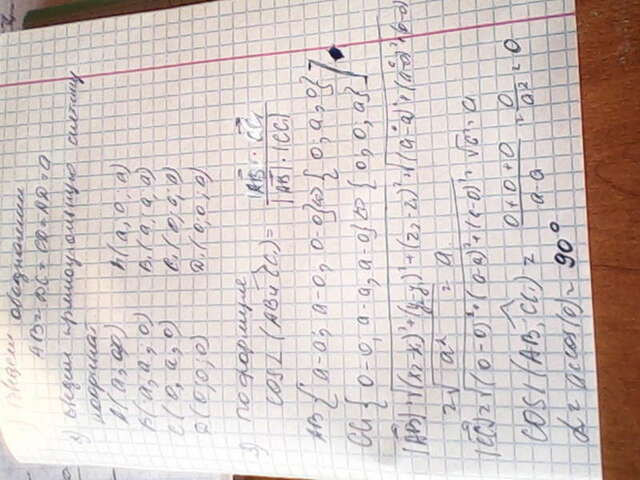 Введем обозначения
AB = DC = CD = AD = a
2) введем прямоугольную систему
координат
A (a, 0, 0) A₁ (a, 0, a)
B (a, a, 0) B₁ (a, a, a)
C (0, a, 0) C₁ (0, a, a)
D (0, 0, 0) D₁ (0, 0, a)
3) по формуле
cos∠(AB и CC₁) = |AB · CC₁| / |AB| · |CC₁|
AB {a-a; a-0; 0-0} <=> {0; a; 0}
CC₁ {0-0; a-a; a-0} <=> {0; 0; a}
|AB| = √(x₂-x₁)²+(y₂-y₁)²+(z₂-z₁)² = √(a-a)²+(a-0)²+(0-0)
= √a² = a
|CC₁| = √(0-0)²+(a-a)²+(a-0)² = √a² = a
cos∠(AB, CC₁) = 0+0+0 / a·a = 0 / a² = 0
α = arccos(0) = 90°